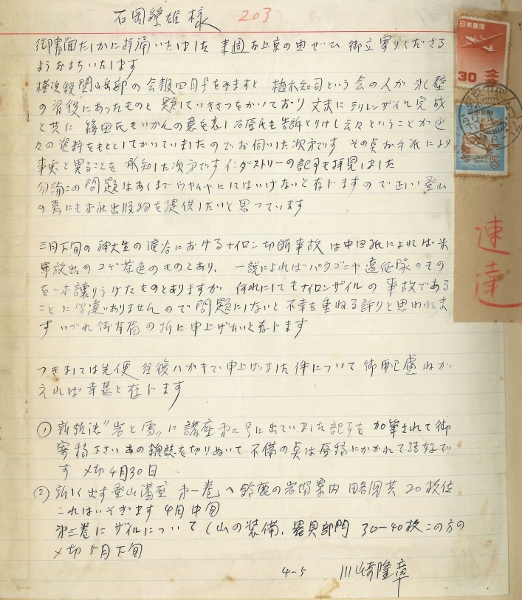 石岡繁雄様 203
御書面たしかに拝誦いたしました 来週お上京の由ぜひ御立寄りくださる
ようおまちいたします
横浜 山岳部の会報四月号をみますと 植木知司という会の人が氷壁
の背後にあったものと題していきさつをかいており 文末にシリレンザイル完成
と共に 篠田氏もいかんの意を表し石原氏も告訴とりけし云々ということが色
々の資料をもととしてかいていましたのでお伺いした次第です その点お手紙により
事実と異ることを承知した次第です インダストリーの記事も拝見しました
勿論この問題はあくまでウヤムヤにしてはいけないと存じますので正しい登山
の為にもお氷出版物を提供したいと思っています
三月下旬の神大生の滝谷におけるナイロン切断事故は中日紙によれば米
軍放出のコゲ茶色のものとあり、一説によればパタゴニヤ遠征隊のもの
を一本譲りうけたものとありますが 何れにしてもナイロンザイルの事故である
ことに間違ありませんので問題にしないと不幸を重ねる許りと思われま
す いづれ御有局の折に申上げたいと存じます
つきましては先便 往復ハガキで申上げました件について御配慮ねが
えれば幸甚と存じます
① 新雑誌"岩と雪"に講座 に出ていました記事を加筆されて御
寄稿下さい あの雑誌を切りぬいて不備の点は原稿にかかれて結構で
す 〆切4月30日
② 新しく出す登山講座 第一巻へ鈴鹿の岩場案内 略図共20枚位
これはいそぎます 4月中旬
第三巻にザイルについて(山の装備、器具部門 30–40枚 この方の
〆切5月下旬
4–5 川崎隆章
日本郵便
30
日本郵便
速達